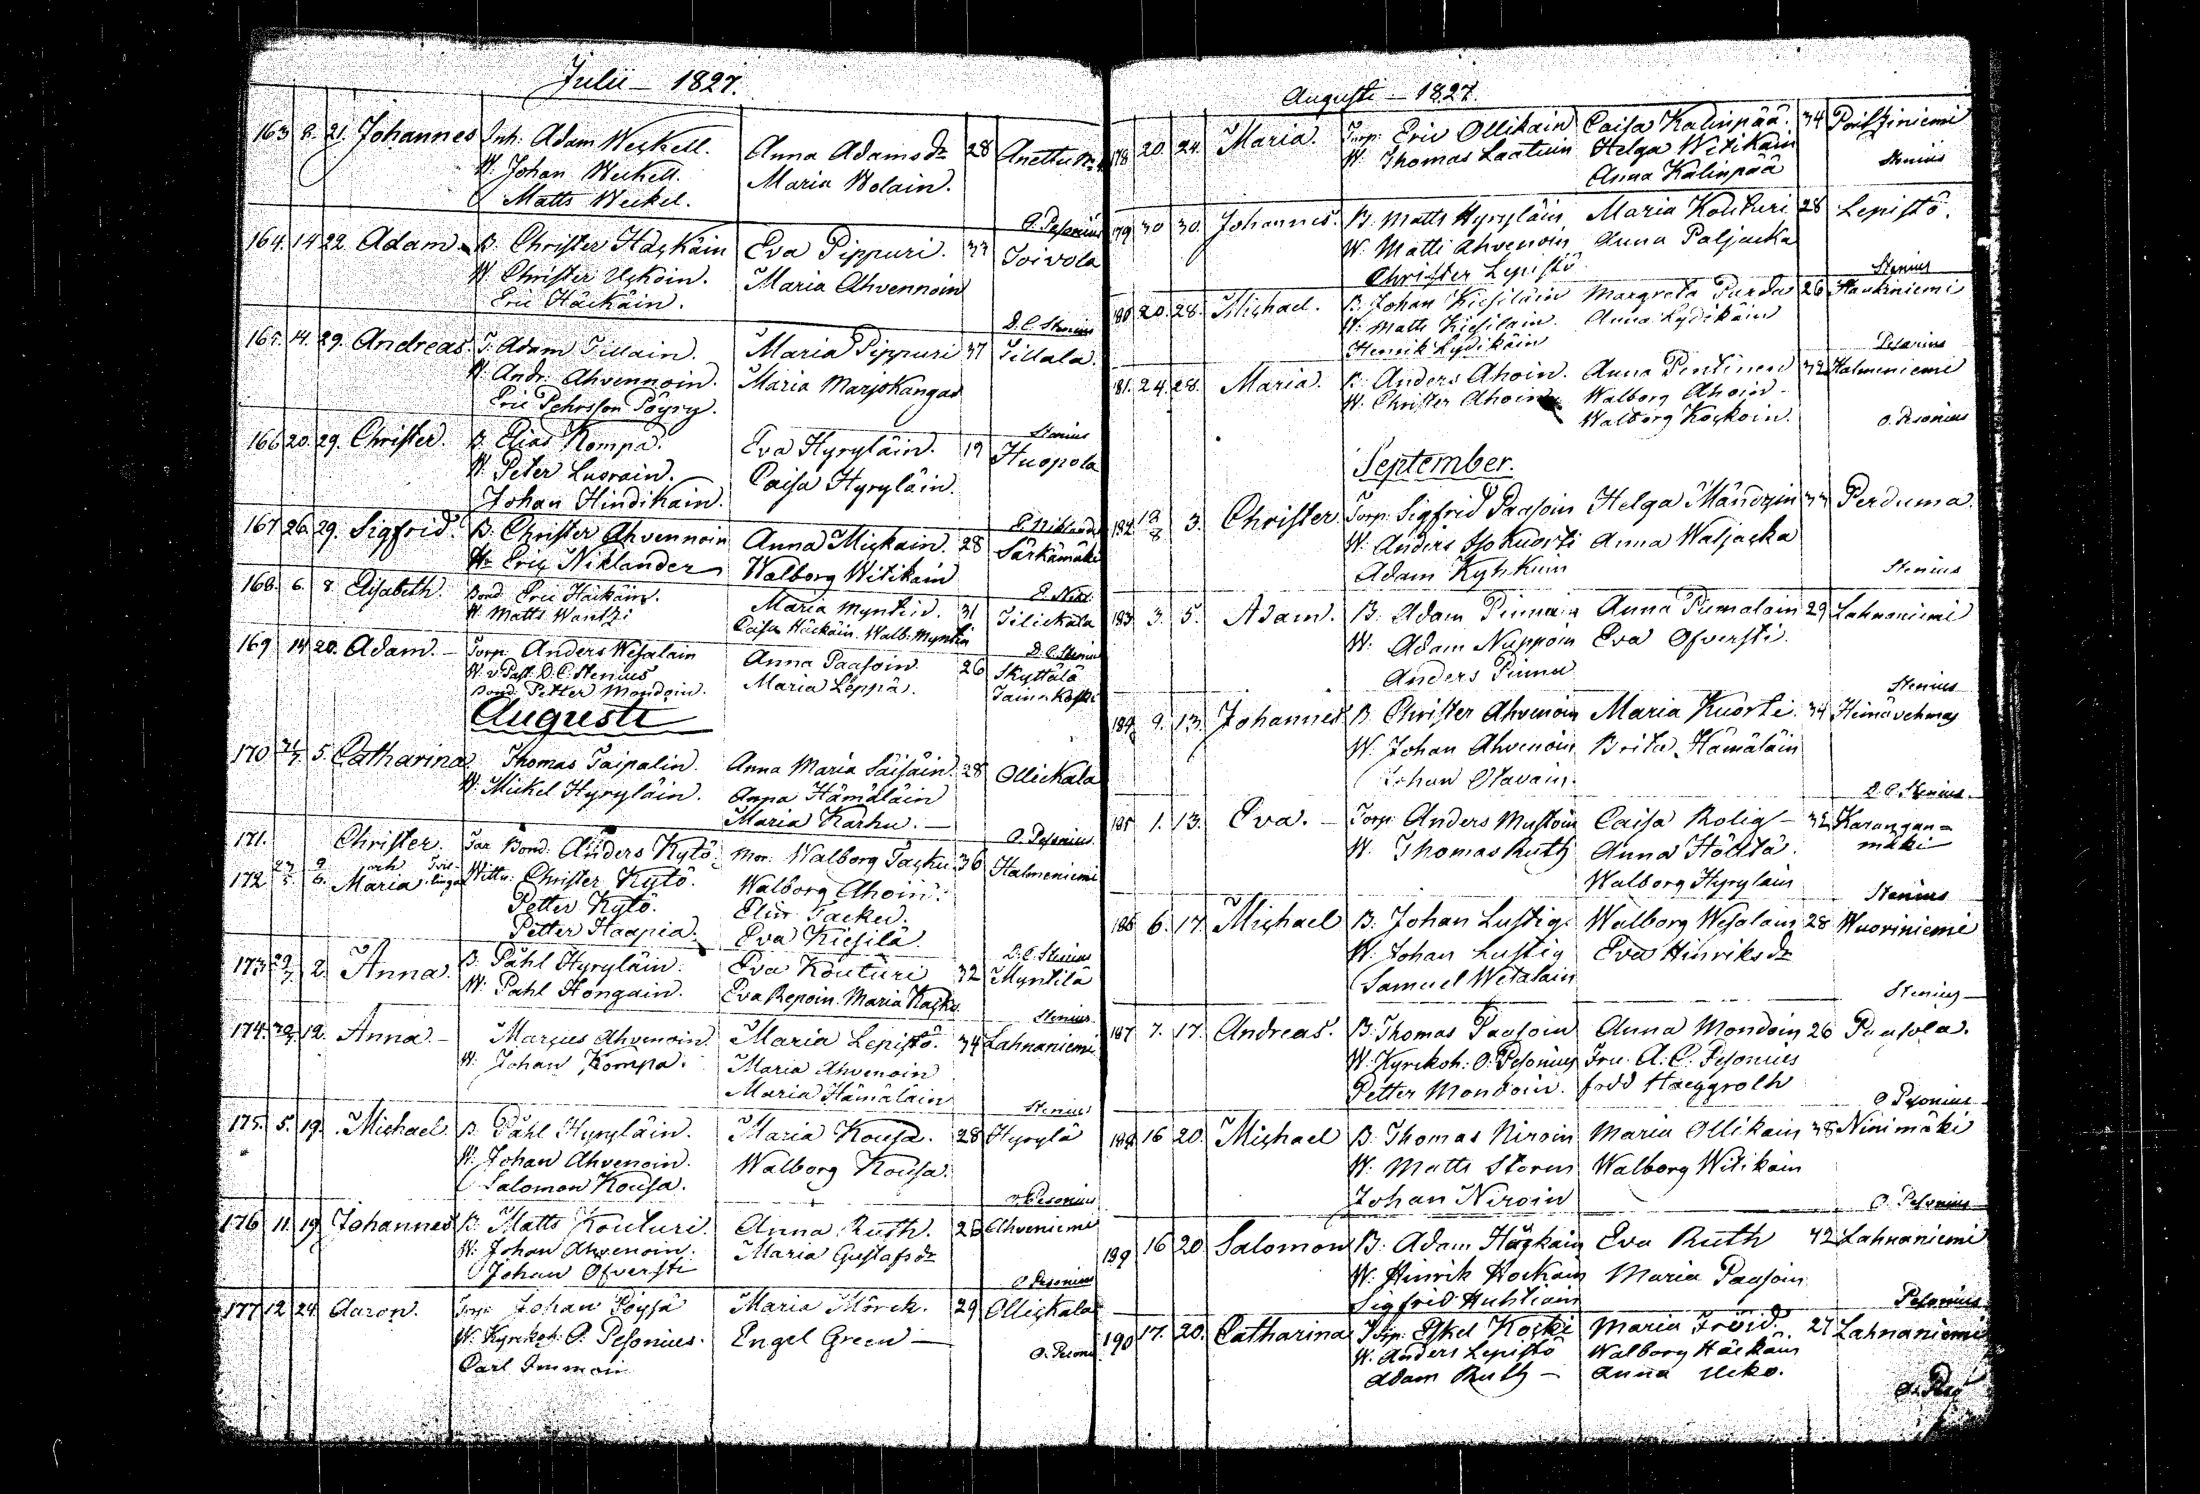 Julii – 1827.
163 8. 21. Johannes Inh. Adam Weckell. Anna Adamsdr 28
W. Johan Weckell. Maria Wolain.
Matts Weckel.
O. Pesonius
164. 14 22. Adam B. Christer Häckäin Eva Pippuri. 33 Toivola
W. Christer Uckoin. Maria Ahvennoin
Eric Häckäin.
D. C. Stenius
165. 14. 29. Andreas T. Adam Tillain. Maria Pippuri 37 Tillala.
W. Andr. Ahvennoin. Maria Marjokangas
Eric Pehrsson Pöyry.
Stenius
166 20. 29. Christer. B. Elias Kompa. Eva Hyryläin. 19 Huopola
W. Peter Luorain. Caisa Hyryläin.
Johan Hindikain.
E. Niklander
167 26. 29. Sigfrid. B. Christer Ahvennoin Anna Mickain. 28 Särkämäki
W. Eric Niklander Walborg Witikain
E. Nikl.
168. 6. 8. Elisabeth. Bond. Eric Häckäin. Maria Myntin. 31 Tilickala
W. Matts Wantzi Caisa Häckäin. Walb. Myntin
D. C. Stenius
169 14 20. Adam. – Torp. Anders Wesalain Anna Paasoin. 26 Skyttälä
W. v. Past. D. C. Stenius Maria Leppä. Tainakoski
Bond. Petter Mondoin.
Augusti
170 31/7 5. Catharina Thomas Taipalin. Anna Maria Säisäin. 28 Ollickala
W. Mickel Hyryläin. Anna Hämäläin
Maria Karhu. –
O. Pesonius
171. Christer. Far Bond. Anders Kytö. Mor. Walborg Tacku 36 Halmeniemi
172 och Maria Wittn. Christer Kytö. Walborg Ahoin.
Petter Kytö. Elin Tacku.
Petter Haapia. Eva Kiesilä.
D. C. Stenius
173 29/7 2. Anna. B. Påhl Hyryläin. Eva Kouturi 32 Myntilä
W. Pahl Hongain. Eva Repoin. Maria Kacko
Stenius
174. 12. Anna – Marcus Ahvenoin. Maria Lepistö. 34 Lahnaniemi
W. Johan Kompa. Maria Ahvenoin
Maria Hämäläin
Stenius
175. 5. 19. Michael B. Påhl Hyryläin. Maria Kousa. 28 Hyrylä
W. Johan Ahvenoin. Walborg Kousa.
Salomon Kousa.
O. Pesonius
176 11. 19. Johannes B. Matts Kouturi. Anna Ruth. 25 Ahveniemi
W. Johan Ahvenoin. Maria Gustafsdr
Johan Ofversti
O. Pesonius
177 12 24. Aaron. Torp. Johan Pöysä Maria Mörck. 29 Ollickala
W. Kyrckoh. O. Pesonius. Engel Green –
Carl Immoin
Augusti – 1827.
178 20. 24. Maria. Torp. Eric Ollikain Caisa Kalinpää. 34
W. Thomas Laatuin Helga Witikain
Anna Kalinpää
Stenius
179 30 30. Johannes. B. Matts Hyryläin Maria Kouturi 28 Lepistö.
W. Matti Ahvenoin Anna Paljacka
Christer Lepistö
Stenius
180 20. 28. Michael. B. Johan Kiesiläin Margreta Purdu 26 Haukiniemi
W. Matts Kiesilain. Anna Lydikäin
Henrik Lydikäin
Pesonius
181. 24. 28. Maria. B. Anders Ahoin. Anna Pentinen 32 Halmeniemi
W. Christer Ahoin Walborg Ahoin –
Walborg Kockoin.
O. Pesonius
September.
182. 12/8 3. Christer Torp. Sigfrid Paasoin Helga Mändyin 33 Perduma.
W. Anders Isokuorti Anna Waljacka
Adam Kyhkuin
Stenius
183 3. 5. Adam. B. Adam Pinnain Anna Pumalain 29 Lahnaniemi
W. Adam Nuppoin Eva Ofversti.
Anders Pinna
Stenius
184 9. 13. Johannes B. Christer Ahvenoin Maria Kuorti. 34 Heinävehmas
W. Johan Ahvenoin Brita Hämäläin
Johan Olavain.
D. C. Stenius.
185 1. 13. Eva. – Torp. Anders Mustoin Caisa Rolig – 32 Karangan=
W. Thomas Ruth Anna Höltä. mäki
Walborg Hyryläin
Stenius
186 6. 17. Michael B. Johan Lustig. Walborg Wesalain 28 Wuoriniemi
W. Johan Lustig Eva Hinriksdr
Samuel Wetalain
Stenius –
187 7. 17. Andreas. B. Thomas Paasoin Anna Mondoin 26 Paasola.
W. Kyrckoh. O. Pesonius Fru A. C. Pesonius
Petter Mondoin. född Haeggroth
O Pesonius
188 16 20. Michael B. Thomas Niroin Maria Ollikain 38 Ninimäki
W. Matts Storm Walborg Witikain
Johan Niroin
O. Pesonius
189 16 20. Salomon B. Adam Häckäin Eva Ruth 42 Lahnaniemi
W. Hinrik Hockain Maria Paasoin
Sigfrid Huhtiain
Pesonius
190 17. 20. Catharina Torp. Eskel Kocki Maria Fröid. 27 Lahnaniemi
W. Anders Lepistö Walborg Häckäin
Adam Ruth – Anna Ucko.